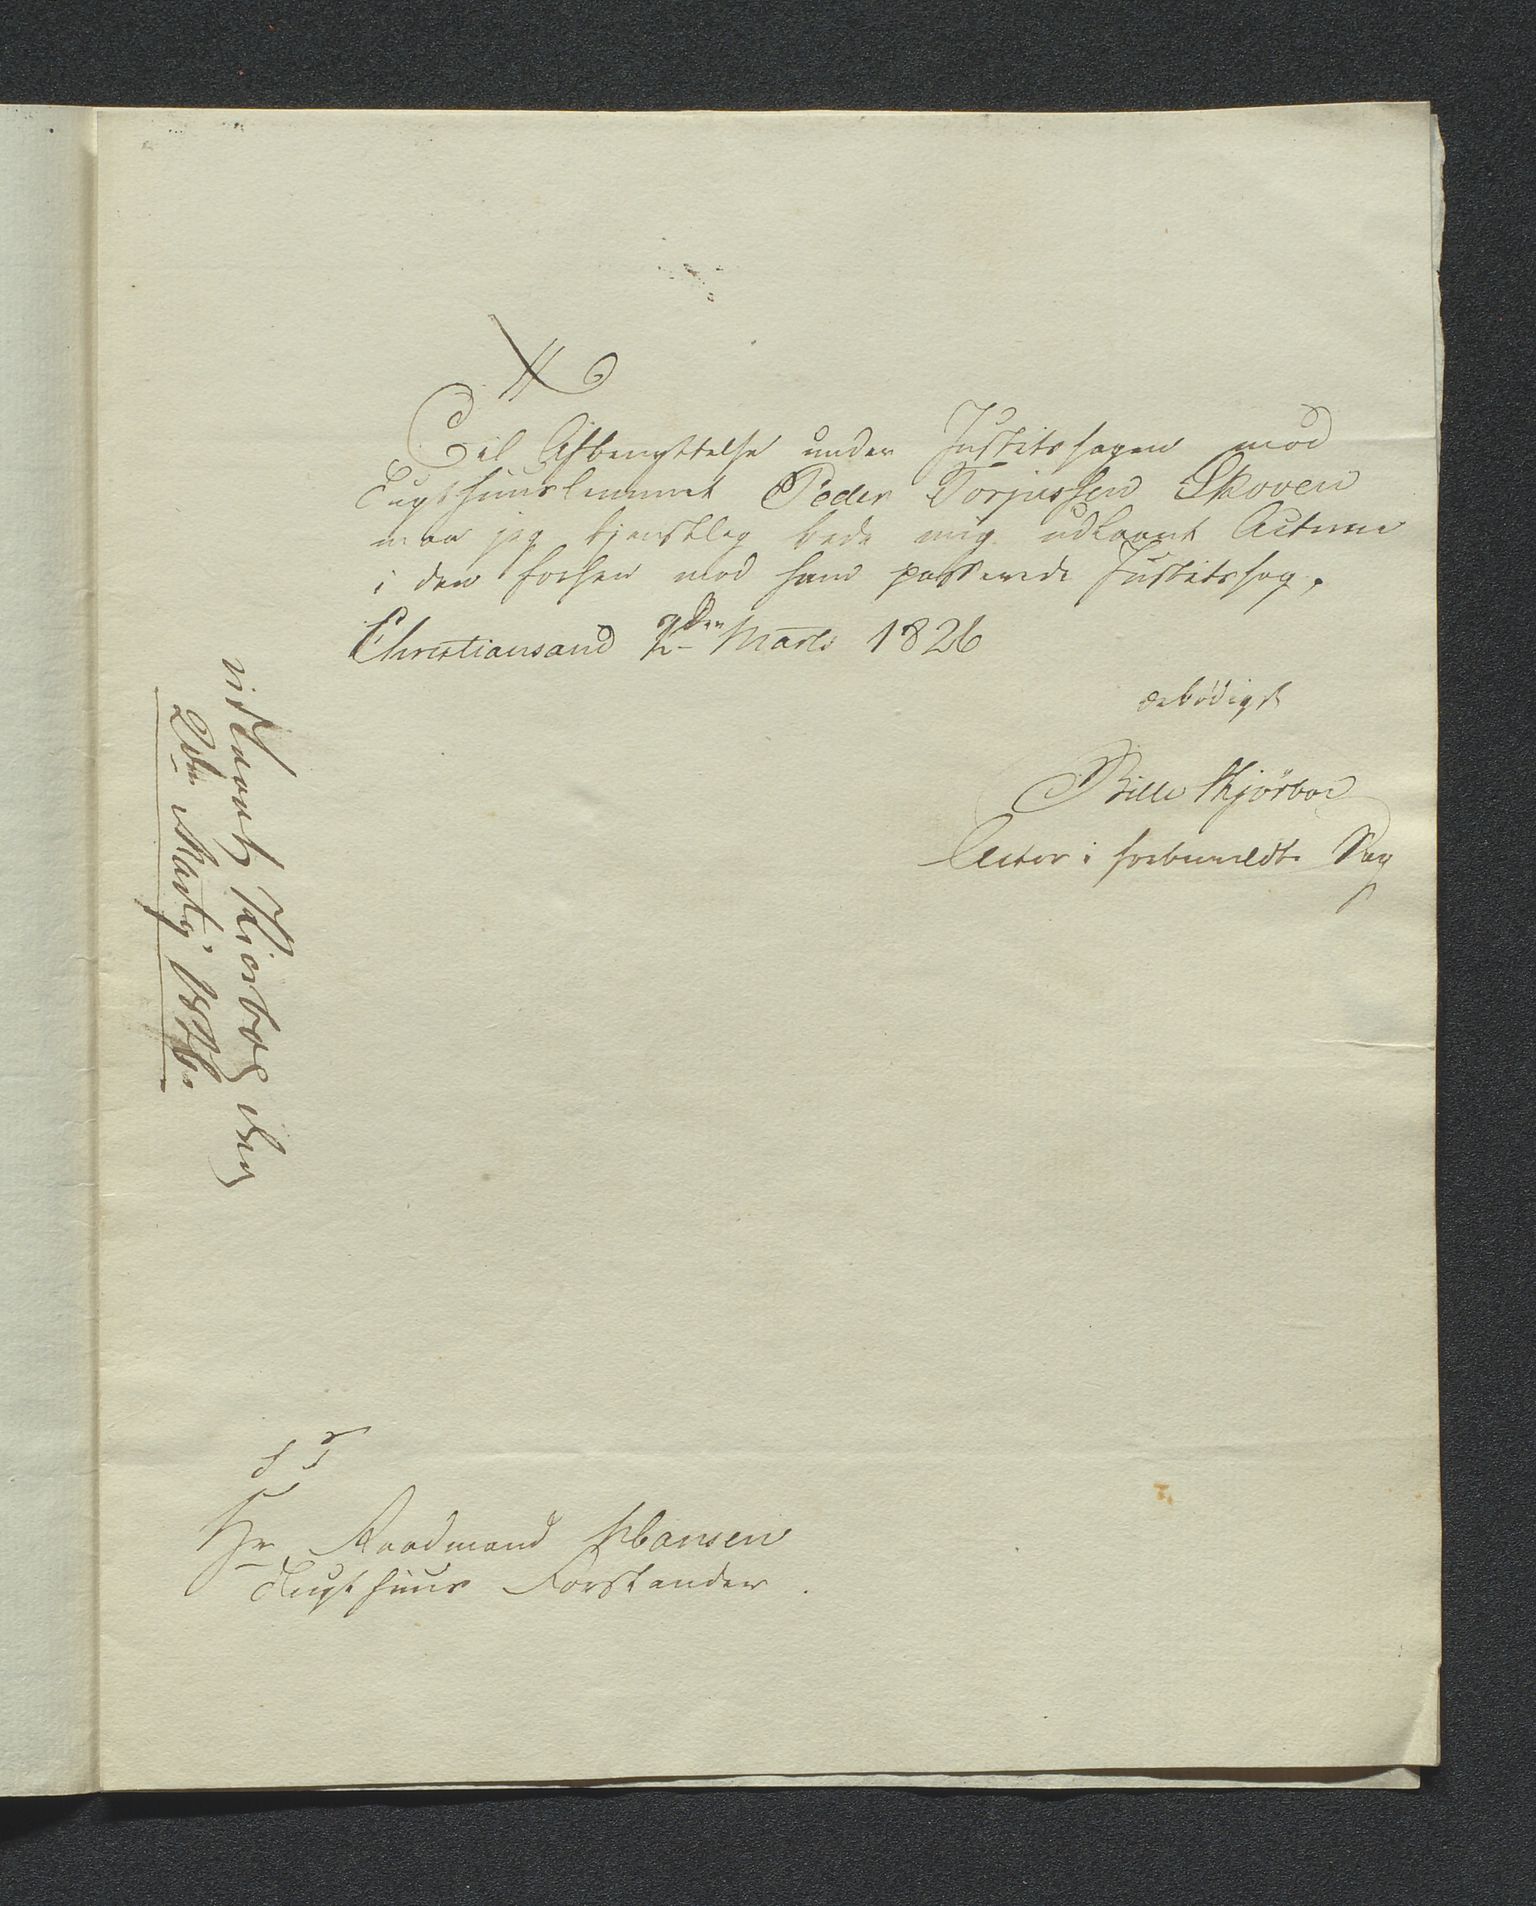 Til Afbenyttelse under Justitssagen mod
Tugthuuslemmet Peder Torjussen Skoven
maa jeg tjenstlig bede mig udlaant Acterne
i den forhen mod ham passerede Justitssag.
Christiansand den Marts 1826
ærbødigst
Bille Kjørboe
Actor i forbemeldte Sag
S T
Hr Raadmand Hansen
Tugthuus Forstander.
Kiørboe den
2den Martÿ 1826.